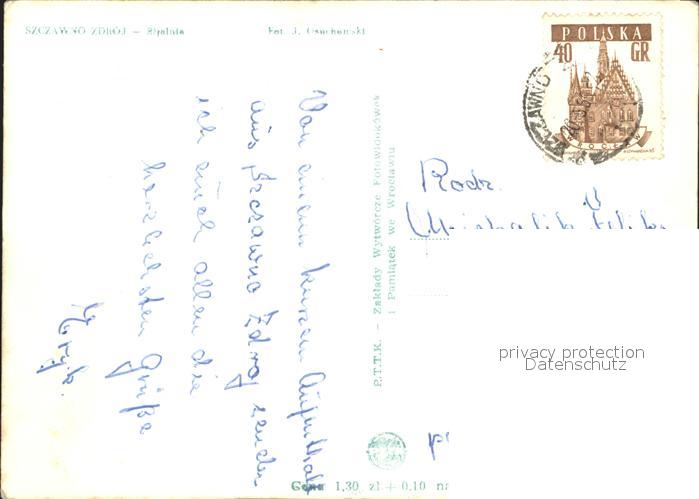 SZCZAWNO ZDRÓJ – Pijalnia
Fot. J. Osuchowski
POLSKA
40 GR
WROCŁAW
Von einem kurzen Aufenthalt
aus Szczawno Zdroj senden
ich euch allen die
herzlichsten Grüße
P.T.T.K. – Zakłady Wytwórcze Fotowidokówek
i Pamiątek we Wrocławiu
Rodz.
privacy protection
Datenschutz
Cena 1,30 zł + 0,10